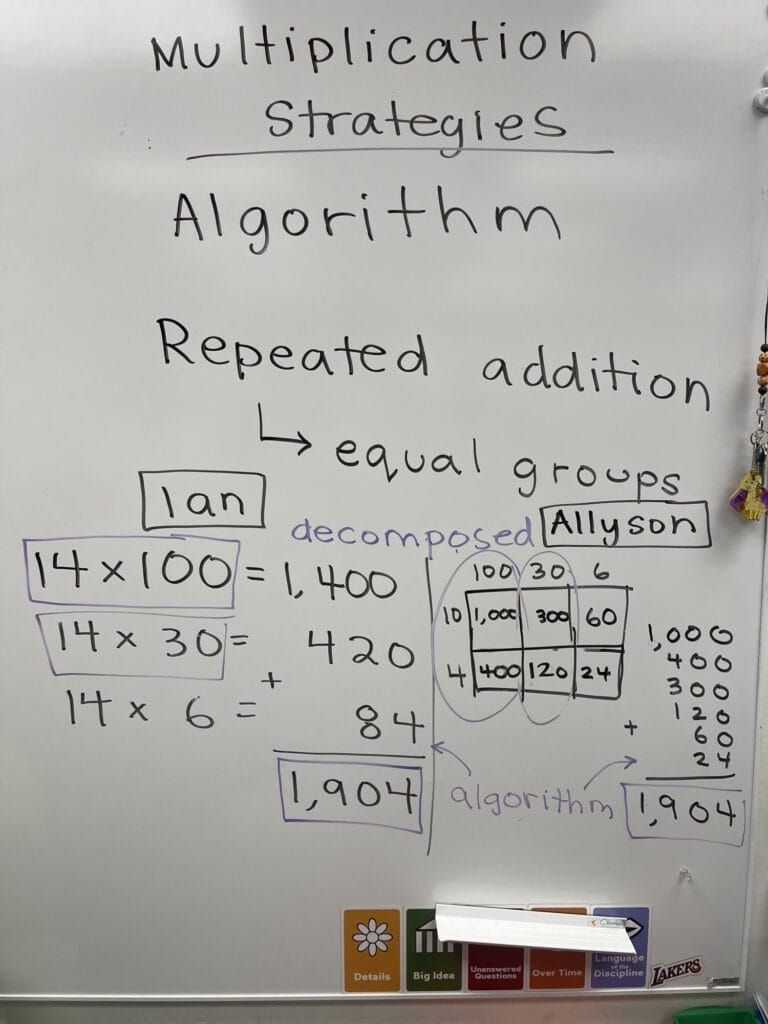 Multiplication
Strategies
Algorithm
Repeated addition
↳ equal groups
Ian
14 x 100 = 1,400
14 x 30 = 420
14 x 6 = + 84
1,904
decomposed
Allyson
100 30 6
10 1,000 300 60
4 400 120 24
1,000
400
300
120
60
+ 24
1,904
algorithm
Details
Big Idea
Unanswered
Questions
Over Time
Language
of the
Discipline
LAKERS